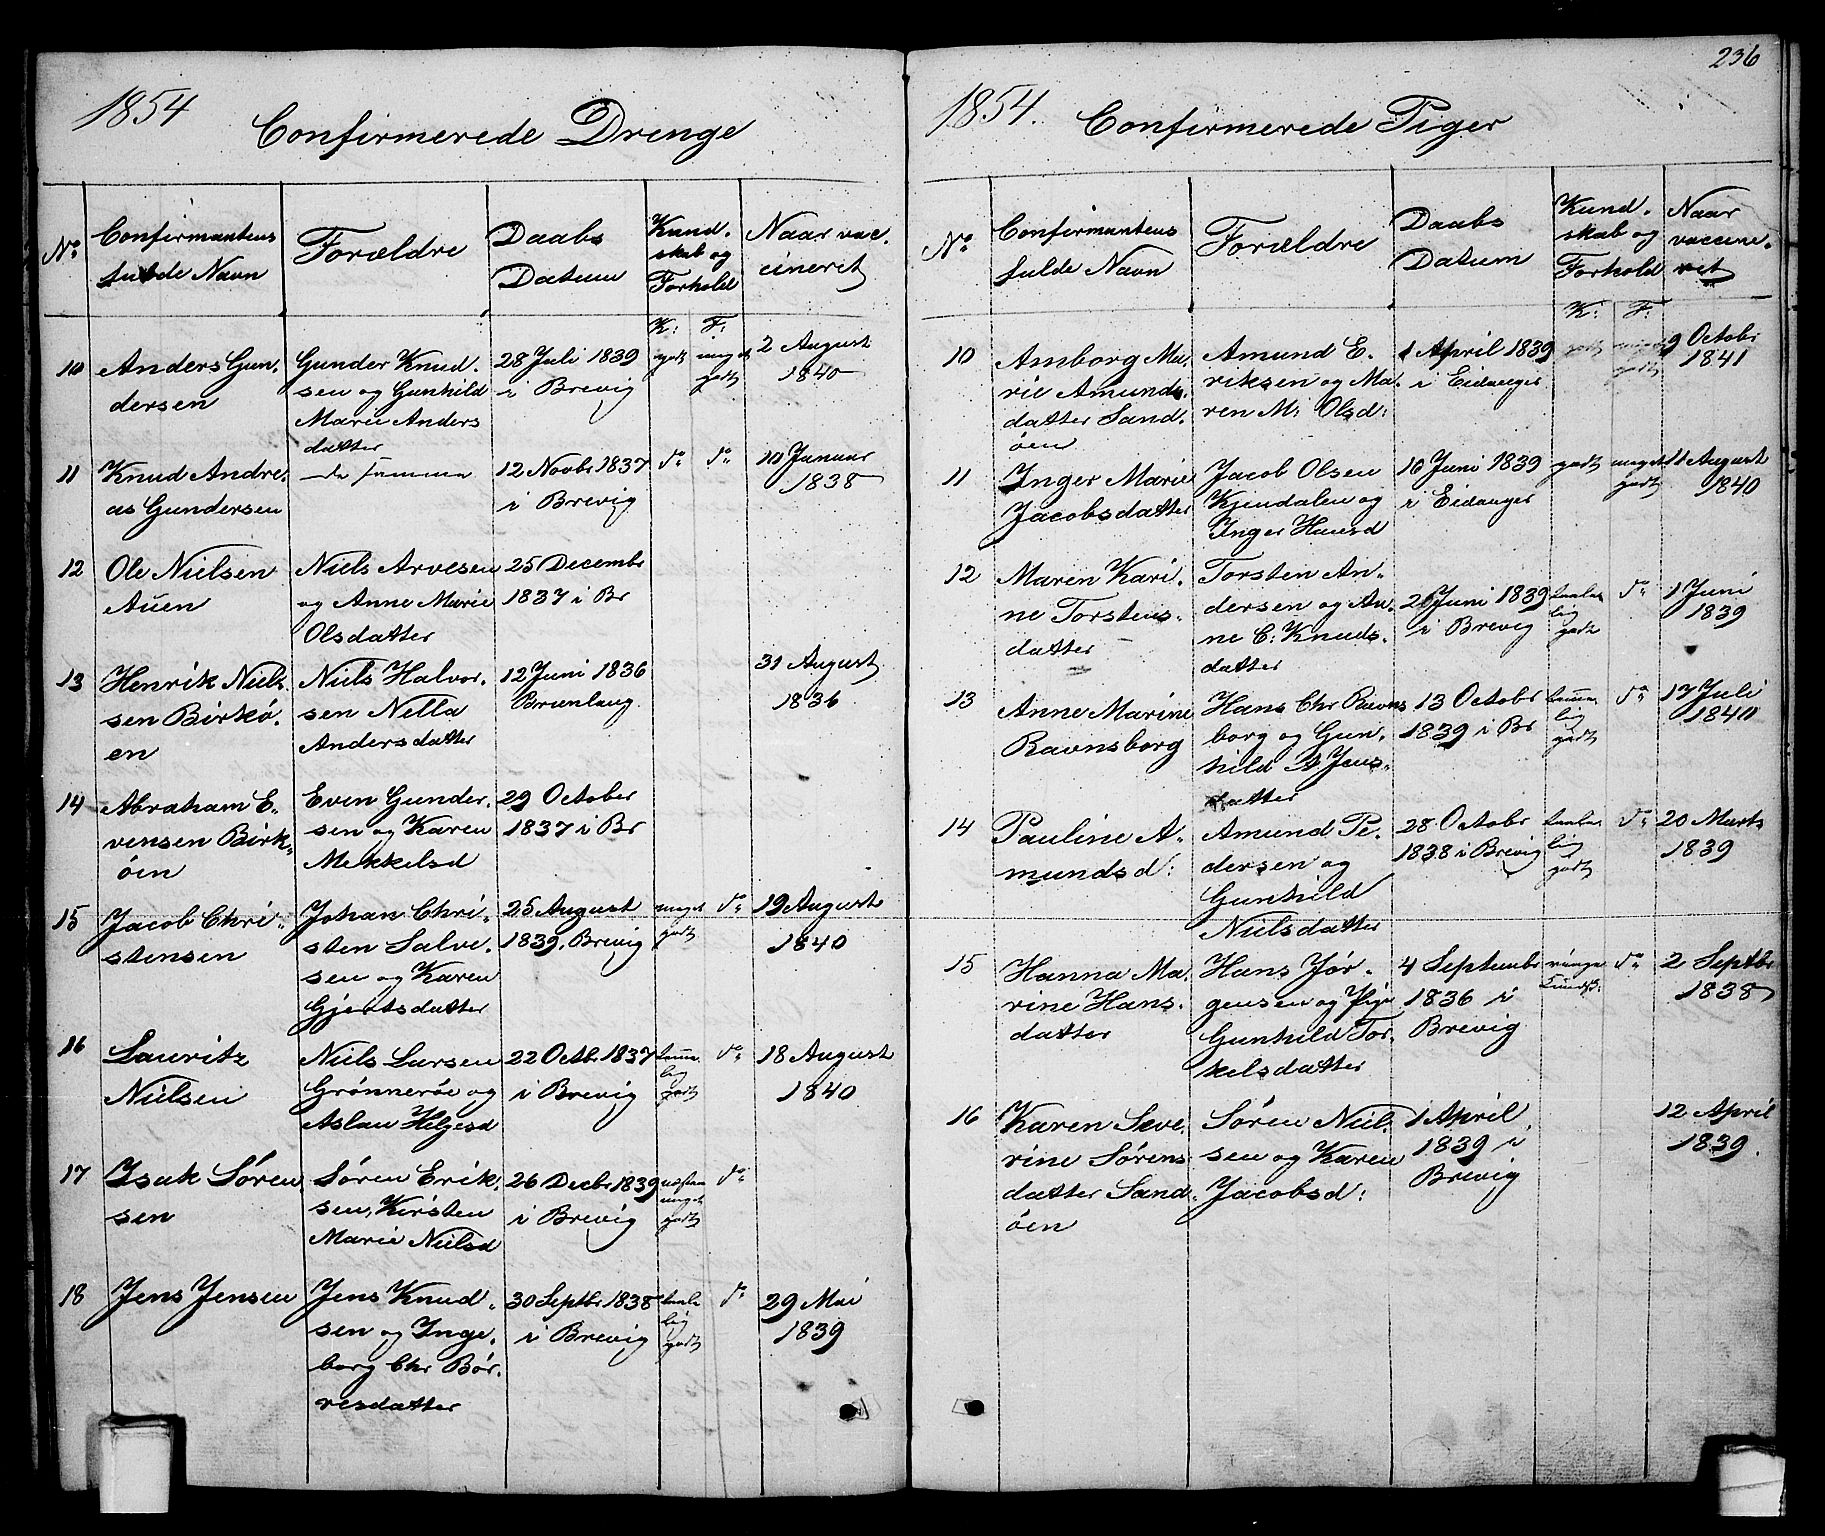 1854
Confirmerede Drenge
No
Confirmantens
fulde Navn
Forældre
Daabs
Datum
Kund-
skab og
Forhold
Naar vac-
cineret
K: F:
10
Anders Gun-
dersen
Gunder Knud-
sen og Gunhild
Marie Anders
datter
28 Juli 1839
i Brevig
godt
meget
godt
2 August
1840
11
Knud Andre-
as Gundersen
de samme
12 Novbr 1837
i Brevig
do do
10 Januar
1838
12
Ole Nielsen
Auen
Niels Arvesen
og Anne Marie
Olsdatter
25 Decembr
1837 i Br
13
Henrik Niel-
sen Birkö-
en
Niels Halvor-
sen Nella
Andersdatter
12 Juni 1836
Brunlaug.
31 August
1836
14
Abraham E-
vensen Birk-
öen
Even Gunder-
sen og Karen
Mekkelsd
29 October
1837 i Br
15
Jacob Chri-
stensen
Johan Chri-
sten Salve-
sen og Karen
Gjertsdatter
25 August
1839, Brevig
meget
godt
do
19 August
1840
16
Lauritz
Nielsen
Niels Larsen
Grönneröe og
Aslau Helgesd
22 Octb. 1837
i Brevig
temme
lig
godt
do
18 August
1840
17
Isak Sören-
sen
Sören Erik-
sen, Kirsten
Marie Nielsd
26 Decbr 1839
i Brevig
meget
godt
do
18
Jens Jensen
Jens Knud-
sen og Inge-
borg Chr Bör-
resdatter
30 Septbr 1838
i Brevig
taale
lig
godt
do
29 Mai
1839
236
1854.
Confirmerede Piger
No
Confirmantens
fulde Navn
Forældre
Daabs
Datum
Kund-
skab og
Forhold
Naar
vaccine-
ret
K: F:
10
Amborg Ma-
rie Amunds-
datter Sand-
öen
Amund E-
riksen og Ma-
ren M: Olsd:
1 April 1839
i Eidanger
godt
meget
godt
9 Octobr
1841
11
Inger Marie
Jacobsdatter
Jacob Olsen
Kjendalen og
Inger Hansd
16 Juni 1839
i Eidanger
godt
meget
godt
11 August
1840
12
Maren Kari-
ne Torstens-
datter
Torsten An-
dersen og An-
ne C. Knuds-
datter
21 Juni 1839
i Brevig
taale
lig
godt
do
1 Juni
1839
13
Anne Marine
Ravnsborg
Hans Chr Ravns
borg og Gun-
hild A Jens-
datter
13 Octobr
1839 i Br
temme
lig
godt
do
17 Juli
1840
14
Pauline A-
mundsd:
Amund Pe-
dersen og
Gunhild
Nielsdatter
28 Octobr
1838 i Brevig
taale
lig
godt
do
20 Marts
1839
15
Hanna Ma-
rine Hans-
datter
Hans Jör-
gensen og Pige
Gunhild Tor-
kelsdatter
4 Septembr
1836 i
Brevig
ringe
Kundsk:
do
2 Septbr
1838
16
Karen Seve-
rine Sörens
datter Sand-
öen
Sören Niel-
sen og Karen
Jacobsd:
1 April,
1839 i
Brevig
12 April
1839.